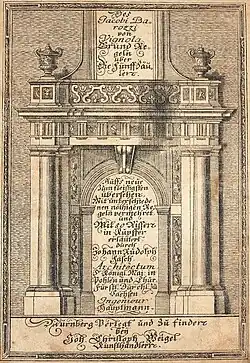 Des
Jacobi Ba„
rozzi
von
Vignola
Grund Re„
geln
über
Die Fünff Säu„
len:
Auffs neue
zum fleißigsten
übersehen.
Mit unterschiede„
nen nöthigen Re„
geln vermehret
und
Mit Rissen
in Kupffer
erläutert
durch
Johann Rudolph
Fäsch
Architectum
Königl. Maj: in
Pohlen und Chur
fürstl. Durchl. zu
Sachsen
Ingenieur
Hauptmann.
Nürnberg Verlegt und zu finden
bey
Joh. Christoph Weigel
Kunsthändlern.